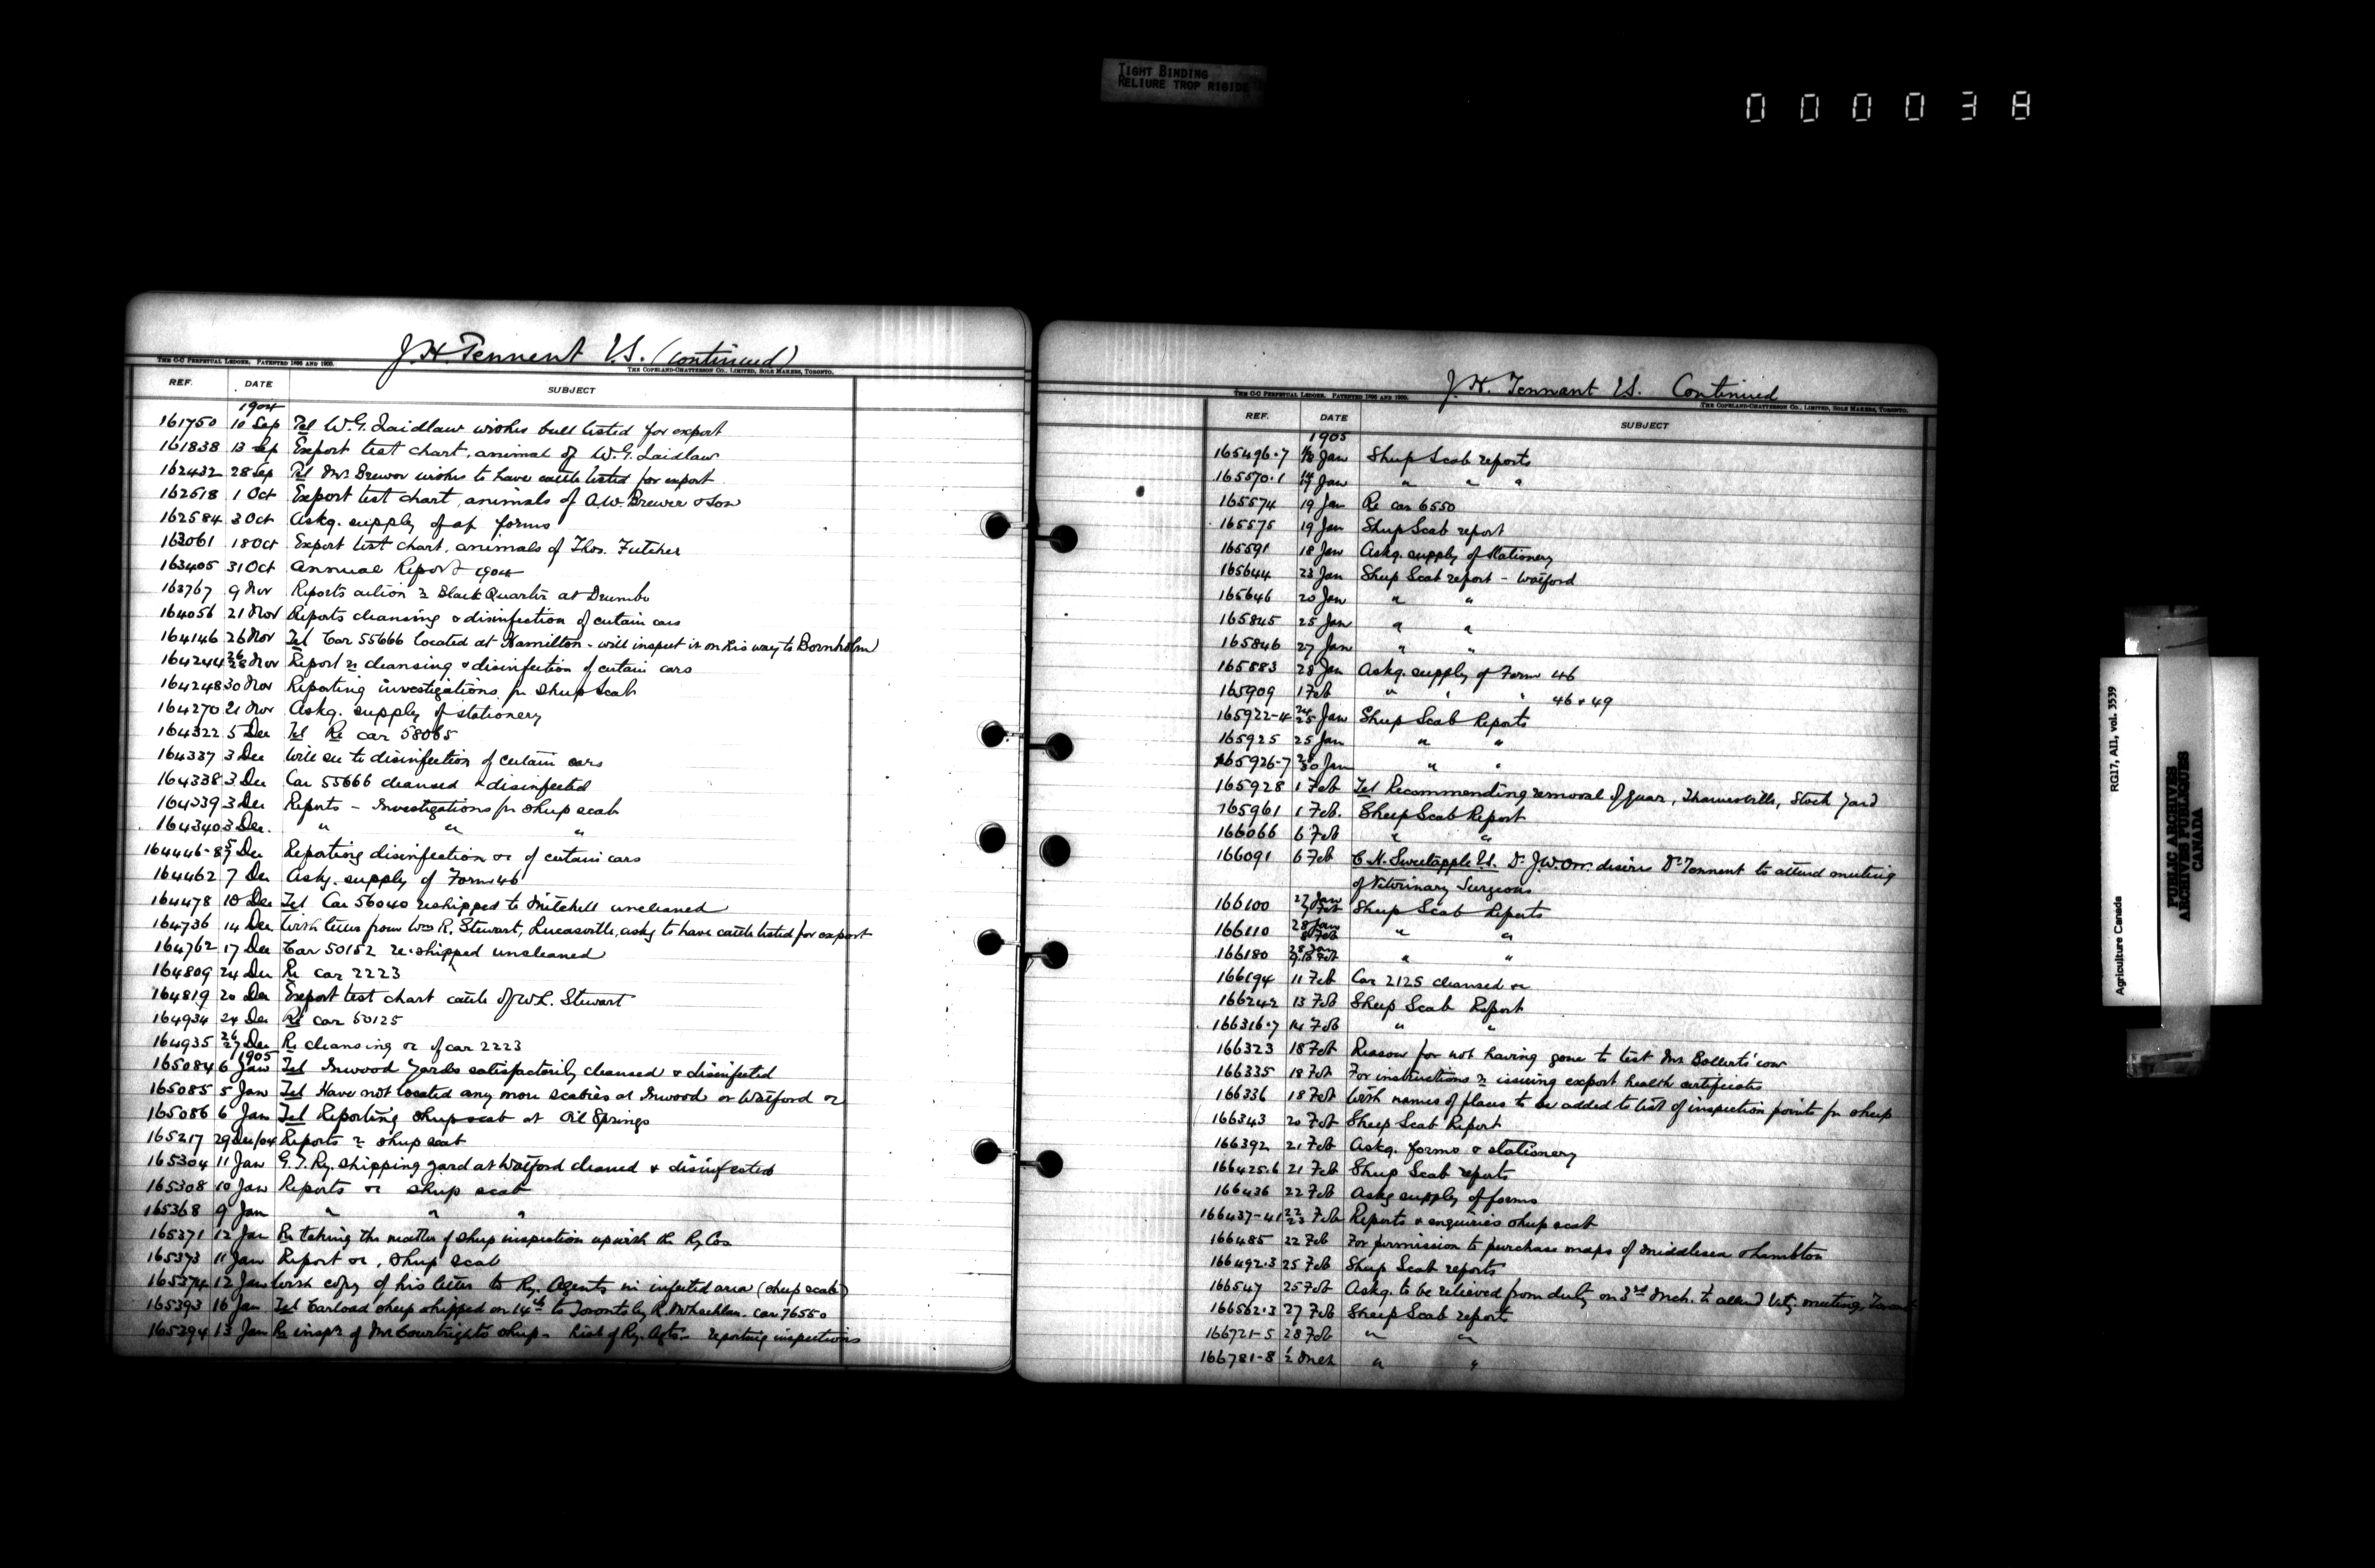 TIGHT BINDING
RELIURE TROP RIGIDE
000038
J. H. Tennent V.S. (Continued)
THE C-C PERPETUAL LEDGER, PATENTED 1896 AND 1900.
THE COPELAND-CHATTERSON CO., LIMITED, SOLE MAKERS, TORONTO.
REF. DATE SUBJECT
1904
161750 10 Sep Tel W. G. Laidlaw wishes bull tested for export
161838 13 Sep Export test chart, animal of W. G. Laidlaw
162432 28 Sep Tel Mr. Brewer wishes to have cattle tested for export
162518 1 Oct Export test chart, animals of A.W. Brewer & Son
162584 3 Oct Askg. supply of forms
163061 18 Oct Export test chart, animals of Thos. Futcher
163405 31 Oct Annual Report 1904
163767 9 Nov Reports action re Black Quarter at Drumbo
164056 21 Nov Reports cleansing & disinfection of certain cars
164146 26 Nov Tel Car 55666 located at Hamilton - will inspect it on his way to Bornholm
164244 26/28 Nov Report re cleansing & disinfection of certain cars
164248 30 Nov Reporting investigations for Sheep Scab
164270 21 Nov Askg. supply of stationery
164322 5 Dec Tel Re car 58065
164337 3 Dec Will see to disinfection of certain cars
164338 3 Dec Car 55666 cleansed & disinfected
164339 3 Dec Reports - Investigations for sheep scab
164340 3 Dec. " " "
164446-8 5/7 Dec Reporting disinfection re of certain cars
164462 7 Dec Askg. supply of Form 46
164478 10 Dec Tel Car 56040 reshipped to Mitchell uncleaned
164736 14 Dec With letter from Wm R. Stewart, Lucasville, askg to have cattle tested for export
164762 17 Dec Car 50152 re-shipped uncleaned
164809 24 Dec Re car 2223
164819 20 Dec Export test chart cattle of W.L. Stewart
164934 24 Dec Re car 50125
164935 26/27 Dec Re cleansing re of car 2223
1905
165084 6 Jan Tel Inwood Yards satisfactorily cleansed & disinfected
165085 5 Jan Tel Have not located any more scabies at Inwood or Watford re
165086 6 Jan Tel Reporting sheep scab at Oil Springs
165217 29 Dec/04 Reports re sheep scab
165304 11 Jan G.T. Ry. shipping yard at Watford cleaned & disinfected
165308 10 Jan Reports re sheep scab
165368 9 Jan " " "
165371 12 Jan Re taking the matter of sheep inspection up with the Ry Cos
165373 11 Jan Report re, sheep scab
165374 12 Jan With copy of his letter to Ry. Agents in infected area (sheep scab)
165393 16 Jan Tel Carload sheep shipped on 14th to Toronto by R. McLachlan. Car 76550
165394 13 Jan Re inspn of Mr Courtrights sheep - List of Ry. Agts - reporting inspections
J. H. Tennant V.S. Continued
THE C-C PERPETUAL LEDGER, PATENTED 1896 AND 1900.
THE COPELAND-CHATTERSON CO., LIMITED, SOLE MAKERS, TORONTO.
REF. DATE SUBJECT
1905
165496-7 Jan Sheep Scab reports
165570-1 14/17 Jan " " "
165574 19 Jan Re car 6550
165575 19 Jan Sheep Scab report
165591 18 Jan Askg. supply of Stationery
165644 23 Jan Sheep Scab report - Watford
165646 20 Jan " "
165845 25 Jan " "
165846 27 Jan " "
165883 28 Jan Askg. supply of Form 46
165909 1 Feb " " " 46 & 49
165922-4 24/25 Jan Sheep Scab Reports
165925 25 Jan " "
165926-7 28/30 Jan " "
165928 1 Feb Tel Recommending removal of quar, Thamesville, Stock Yard
165961 1 Feb. Sheep Scab Report
166066 6 Feb " "
166091 6 Feb C. H. Sweetapple V.S. Dr. J.W. Orr. desire Dr. Tennent to attend meeting
of Veterinary Surgeons
166100 27 Jan 7 Feb Sheep Scab Reports
166110 28 Jan 8 Feb " "
166180 28 Jan Feb " "
166194 11 Feb Car 2125 cleansed re
166242 13 Feb Sheep Scab Report
166316-7 14 Feb " "
166323 18 Feb Reason for not having gone to test Mr Bollerts' cow
166335 18 Feb For instructions re issuing export health certificates
166336 18 Feb With names of places to be added to list of inspection points for sheep
166343 20 Feb Sheep Scab Report
166392 21 Feb Askg. forms & stationery
166425-6 21 Feb Sheep Scab reports
166436 22 Feb Askg supply of forms
166437-41 22/23 Feb Reports & enquiries sheep scab
166485 22 Feb For permission to purchase maps of Middlesex & Lambton
166492-3 25 Feb Sheep Scab reports
166547 25 Feb Askg. to be relieved from duty on 3rd Mch. to attend Vety. meeting, Toronto
166562-3 27 Feb Sheep Scab reports
166721-5 28 Feb " "
166781-8 1/2 Mch " "
Agriculture Canada RG17, AII, vol. 3539
PUBLIC ARCHIVES
ARCHIVES PUBLIQUES
CANADA